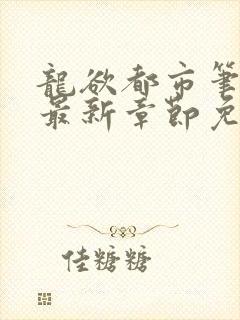 龍欲都市筆
最新章節免
佳糖糖